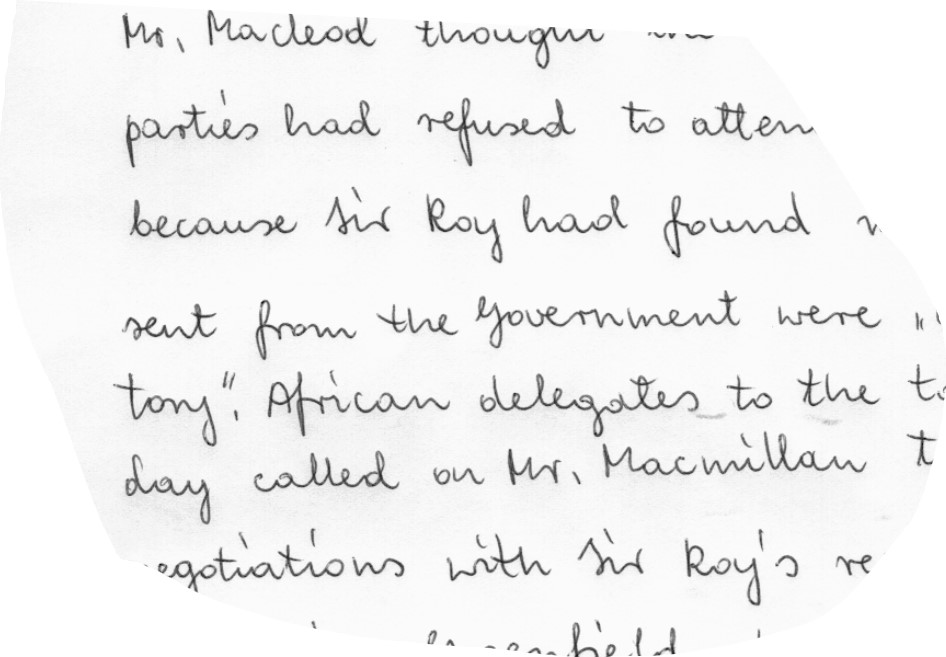 Mr. Macleod thought the
parties had refused to atten
because Sir Roy had found
sent from the Government were "
tory". African delegates to the
day called on Mr. Macmillan t
egotiations with Sir Roy's re